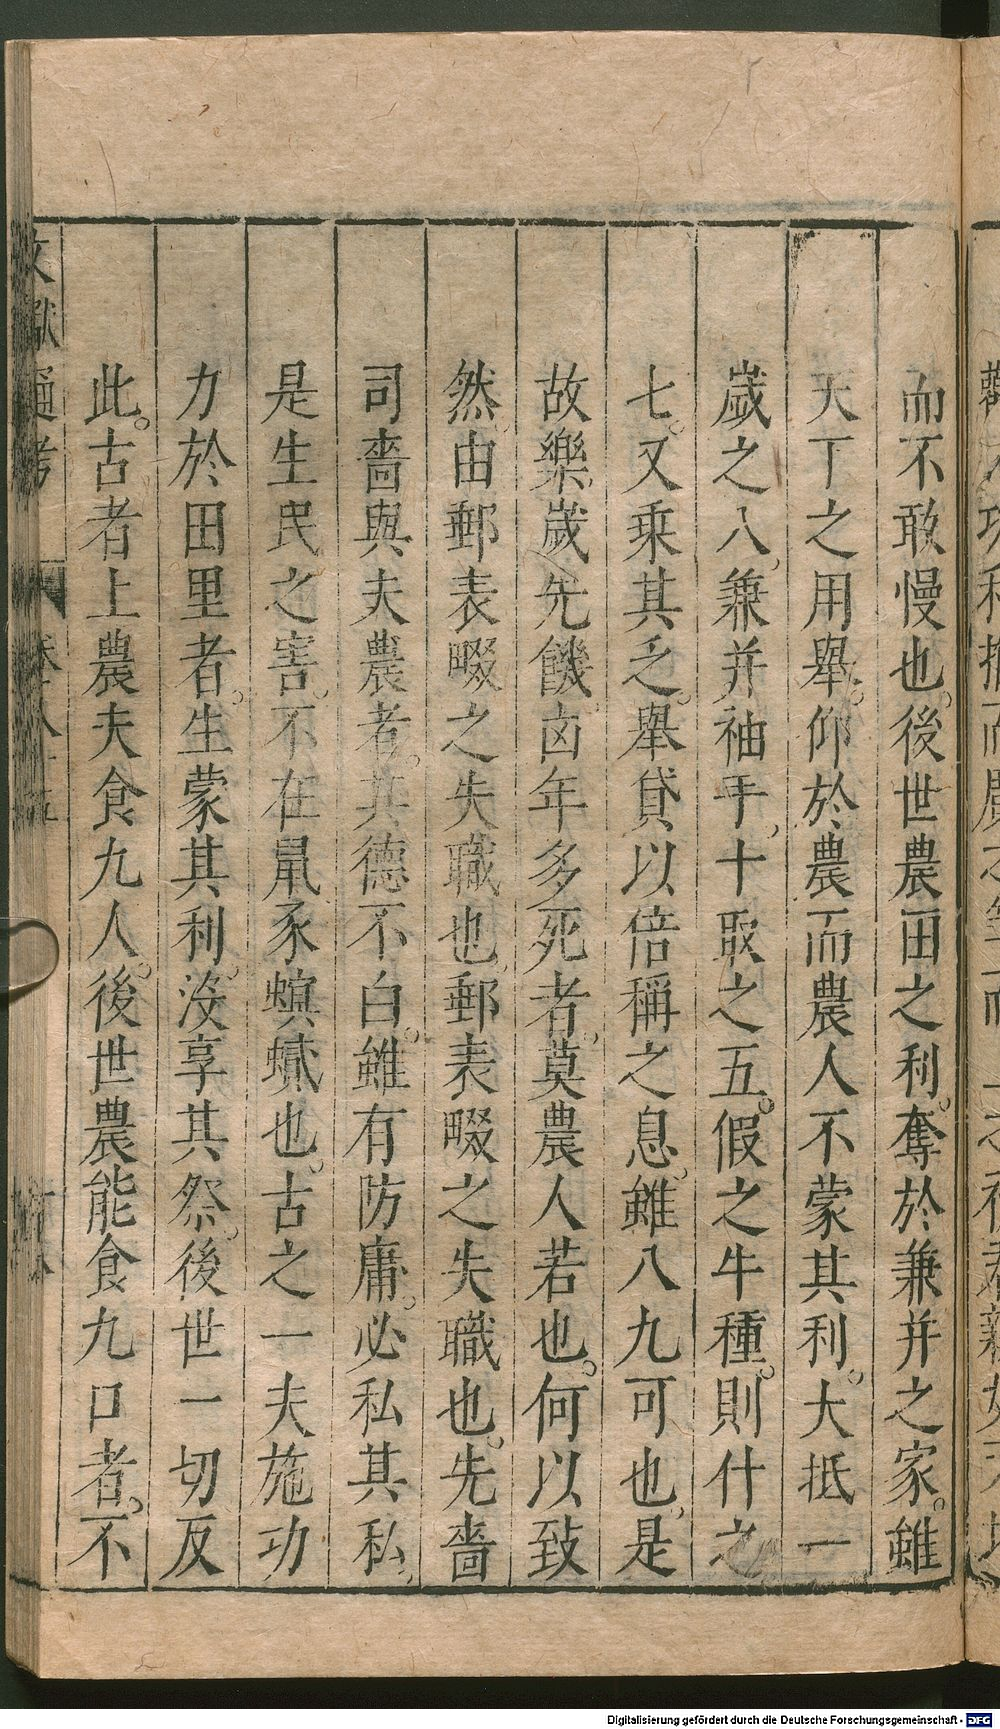 而不敢慢也後世農田之利奪於兼并之家雖
天下之用舉仰於農而農人不蒙其利大抵一
歲之入兼并袖手十取之五假之牛種則什之
七又乗其乏舉貸以倍稱之息雖八九可也是
故樂歲先饑凶年多死者莫農人若也何以致
然由郵表畷之失職也郵表畷之失職也先嗇
司嗇與夫農者其德不白雖有防庸必私其私
是生民之害不在鼠豕螟蟘也古之一夫施功
力於田里者生蒙其利沒享其祭後世一切反
此古者上農夫食九人後世農能食九口者不
文獻通考
Digitalisierung gefördert durch die Deutsche Forschungsgemeinschaft - DFG